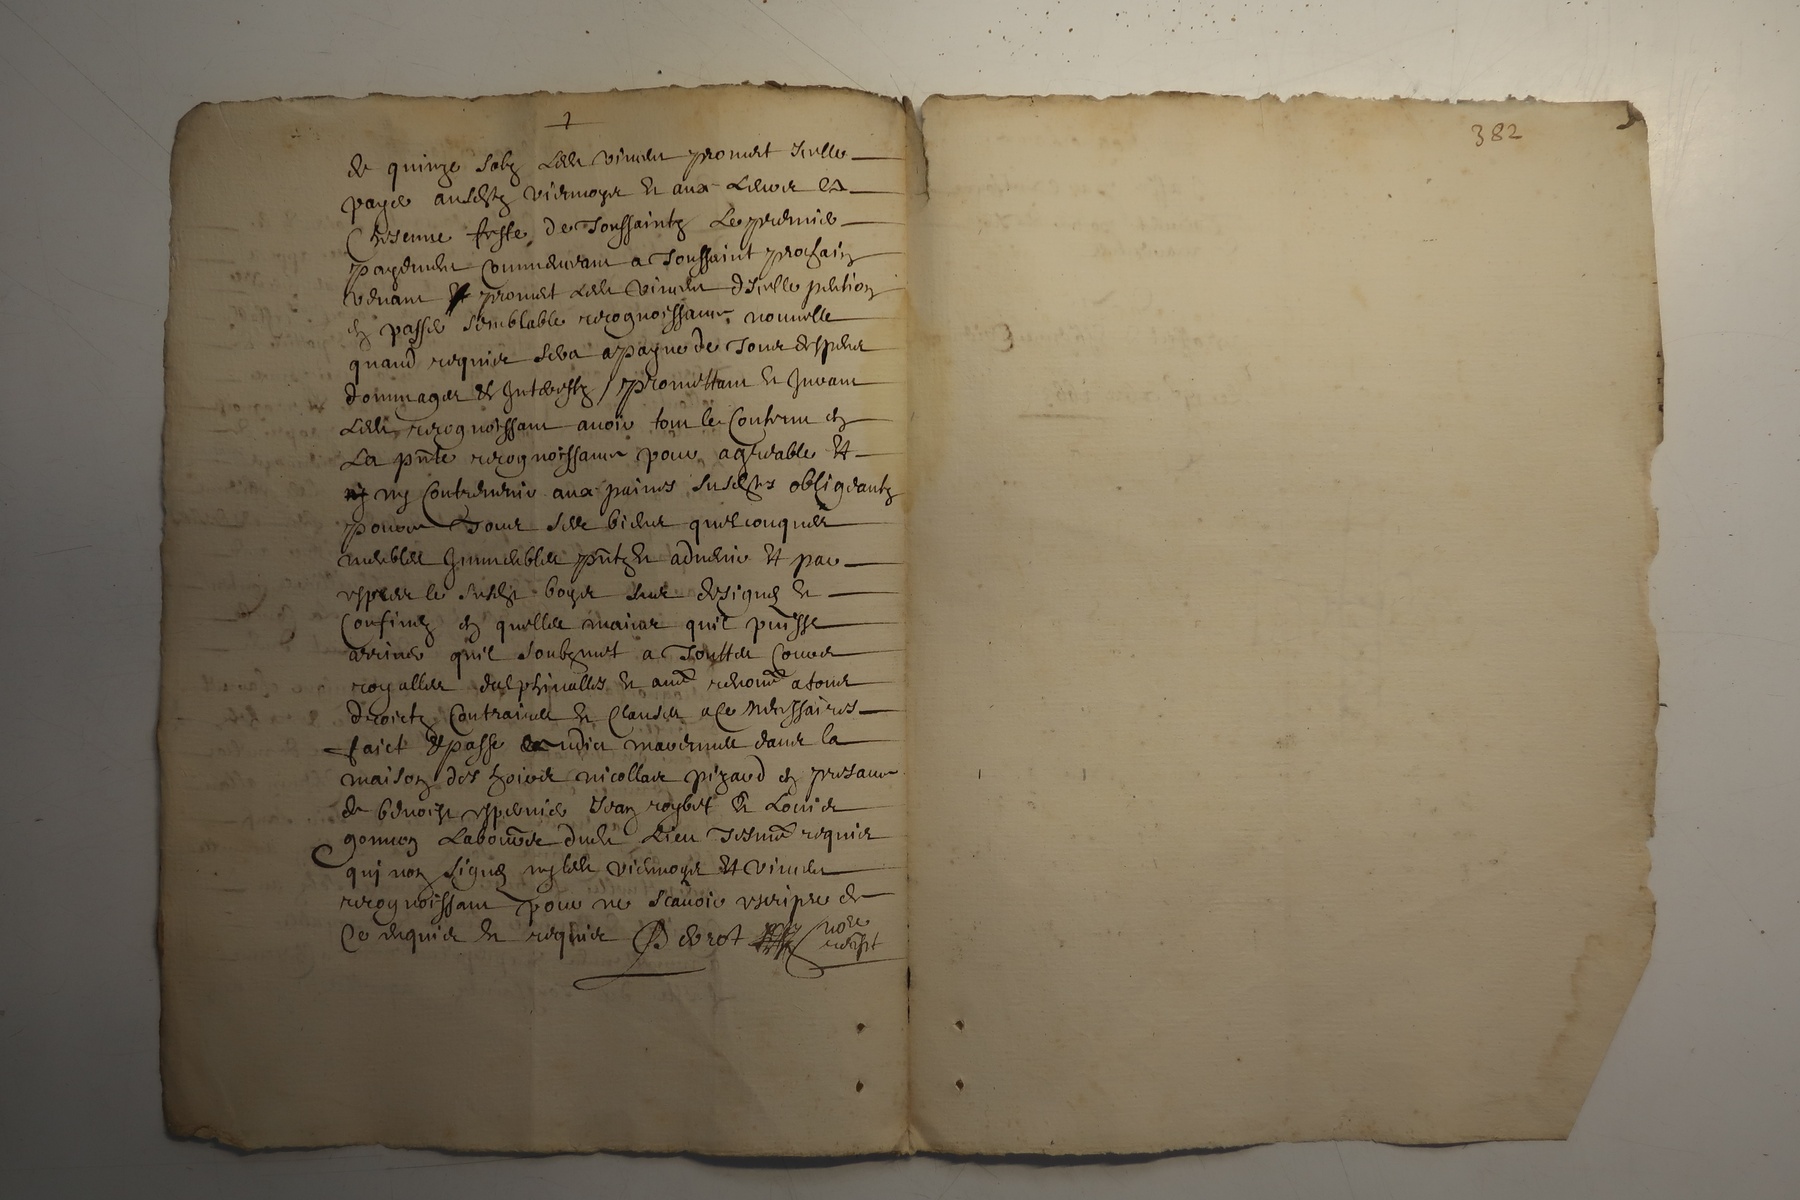 382
de quinze solz ledit vincent promet icelle
payer ausdictz viennoys et aux leurs et
Chesenne feste de Toussaintz le premier
payement commencant a Toussaint prochain
venant Et promet ledit vincent dicelle pention
en passer semblable recognoissance nouvelle
quand requis sera a payne de tous despens
dommages et Interestz / promettant et Jurant
ledit recognoissant avoir tout le Contenu en
La pnte recognoissance pour agreable Et
ny Contrevenir aux paines susdites obligeantz
pource Tous ses biens quelconques
meubles Immeubles pntz et advenir Et par
expres le susdit boys sus designé et
Confiné en quelles mains quil puisse
arriver quil soubzmet a Touttes Cours
royalles delphinalles et aues renonce a tous
droictz Contraires et Clauses a Ce necessaires
faict et passe audict dans la
maison des hoirs nicollas pizard en presance
de benoist espernier Jean roybet et Louis
gonnon Laboureurs dudit Lieu Tesmoins requis
qui non signé ny ledit viennoys Et vincent
recognoissant pour ne scavoir escripre de
Ce enquis et requis
nore